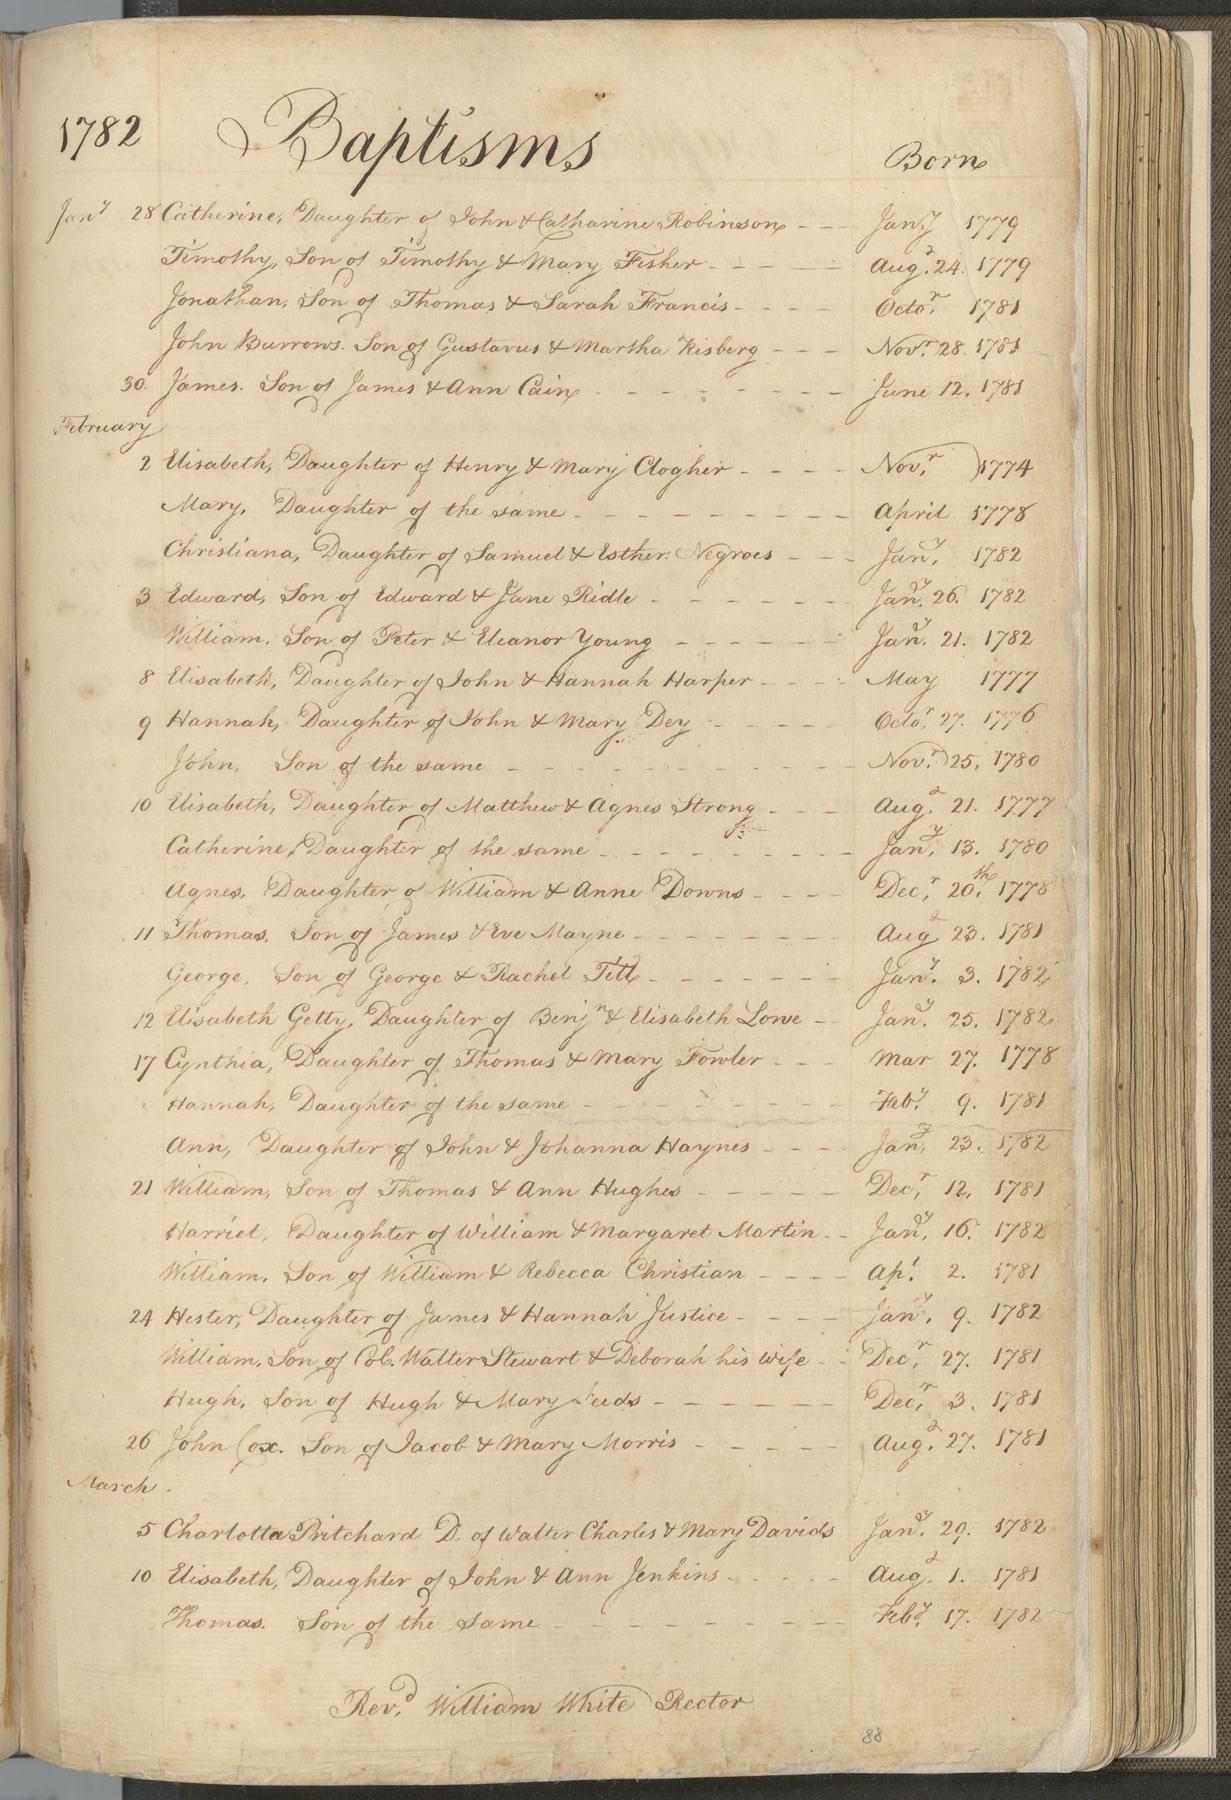 1782 Baptisms Born
Jan.y 28 Catherine, Daughter of John & Catharine Robinson Jan.y 1779
Timothy, Son of Timothy & Mary Fisher Aug.t 24. 1779
Jonathan, Son of Thomas & Sarah Francis Octo.r 1781
John Burrows. Son of Gustavus & Martha Risberg Nov.r 28. 1781
30. James. Son of James & Ann Cain June 12. 1781
February
2 Elisabeth, Daughter of Henry & Mary Clogher Nov.r 1774
Mary, Daughter of the same April 1778
Christiana, Daughter of Samuel & Esther: Negroes Jan.y 1782
3 Edward, Son of Edward & Jane Ridle Jan.y 26. 1782
William. Son of Peter & Eleanor Young Jan.y 21. 1782
8 Elisabeth, Daughter of John & Hannah Harper May 1777
9 Hannah, Daughter of John & Mary Dey Octo.r 27. 1776
John, Son of the same Nov.r 25. 1780
10 Elisabeth, Daughter of Matthew & Agnes Strong Aug.t 21. 1777
Catherine, Daughter of the same Jan.y 13. 1780
Agnes, Daughter o William & Anne Downs Dec.r 20.th 1778
11 Thomas. Son of James & Eve Mayne Aug.t 23. 1781
George. Son of George & Rachel Titt Jan.y 3. 1782
12 Elisabeth Getty, Daughter of Benj.n & Elisabeth Lowe Jan.y 25. 1782
17 Cynthia, Daughter of Thomas & Mary Fowler Mar 27. 1778
Hannah, Daughter of the same Feb.y 9. 1781
Ann, Daughter of John & Johanna Haynes Jan.y 23. 1782
21 William, Son of Thomas & Ann Hughes Dec.r 12. 1781
Harriet, Daughter of William & Margaret Martin Jan.y 16. 1782
William. Son of William & Rebecca Christian Ap.l 2. 1781
24 Hester, Daughter of James & Hannah Justice Jan.y 9. 1782
William. Son of Col. Walter Stewart & Deborah his wife Dec.r 27. 1781
Hugh. Son of Hugh & Mary Dec.r 3. 1781
26 John Cox. Son of Jacob & Mary Morris Aug.t 27. 1781
March.
5 Charlotta Pritchard D. of Walter Charles & Mary Davids Jan.y 29. 1782
10 Elisabeth, Daughter of John & Ann Jenkins Aug.t 1. 1781
Thomas. Son of the same Feb.y 17. 1782
Rev.d William White Rector
88